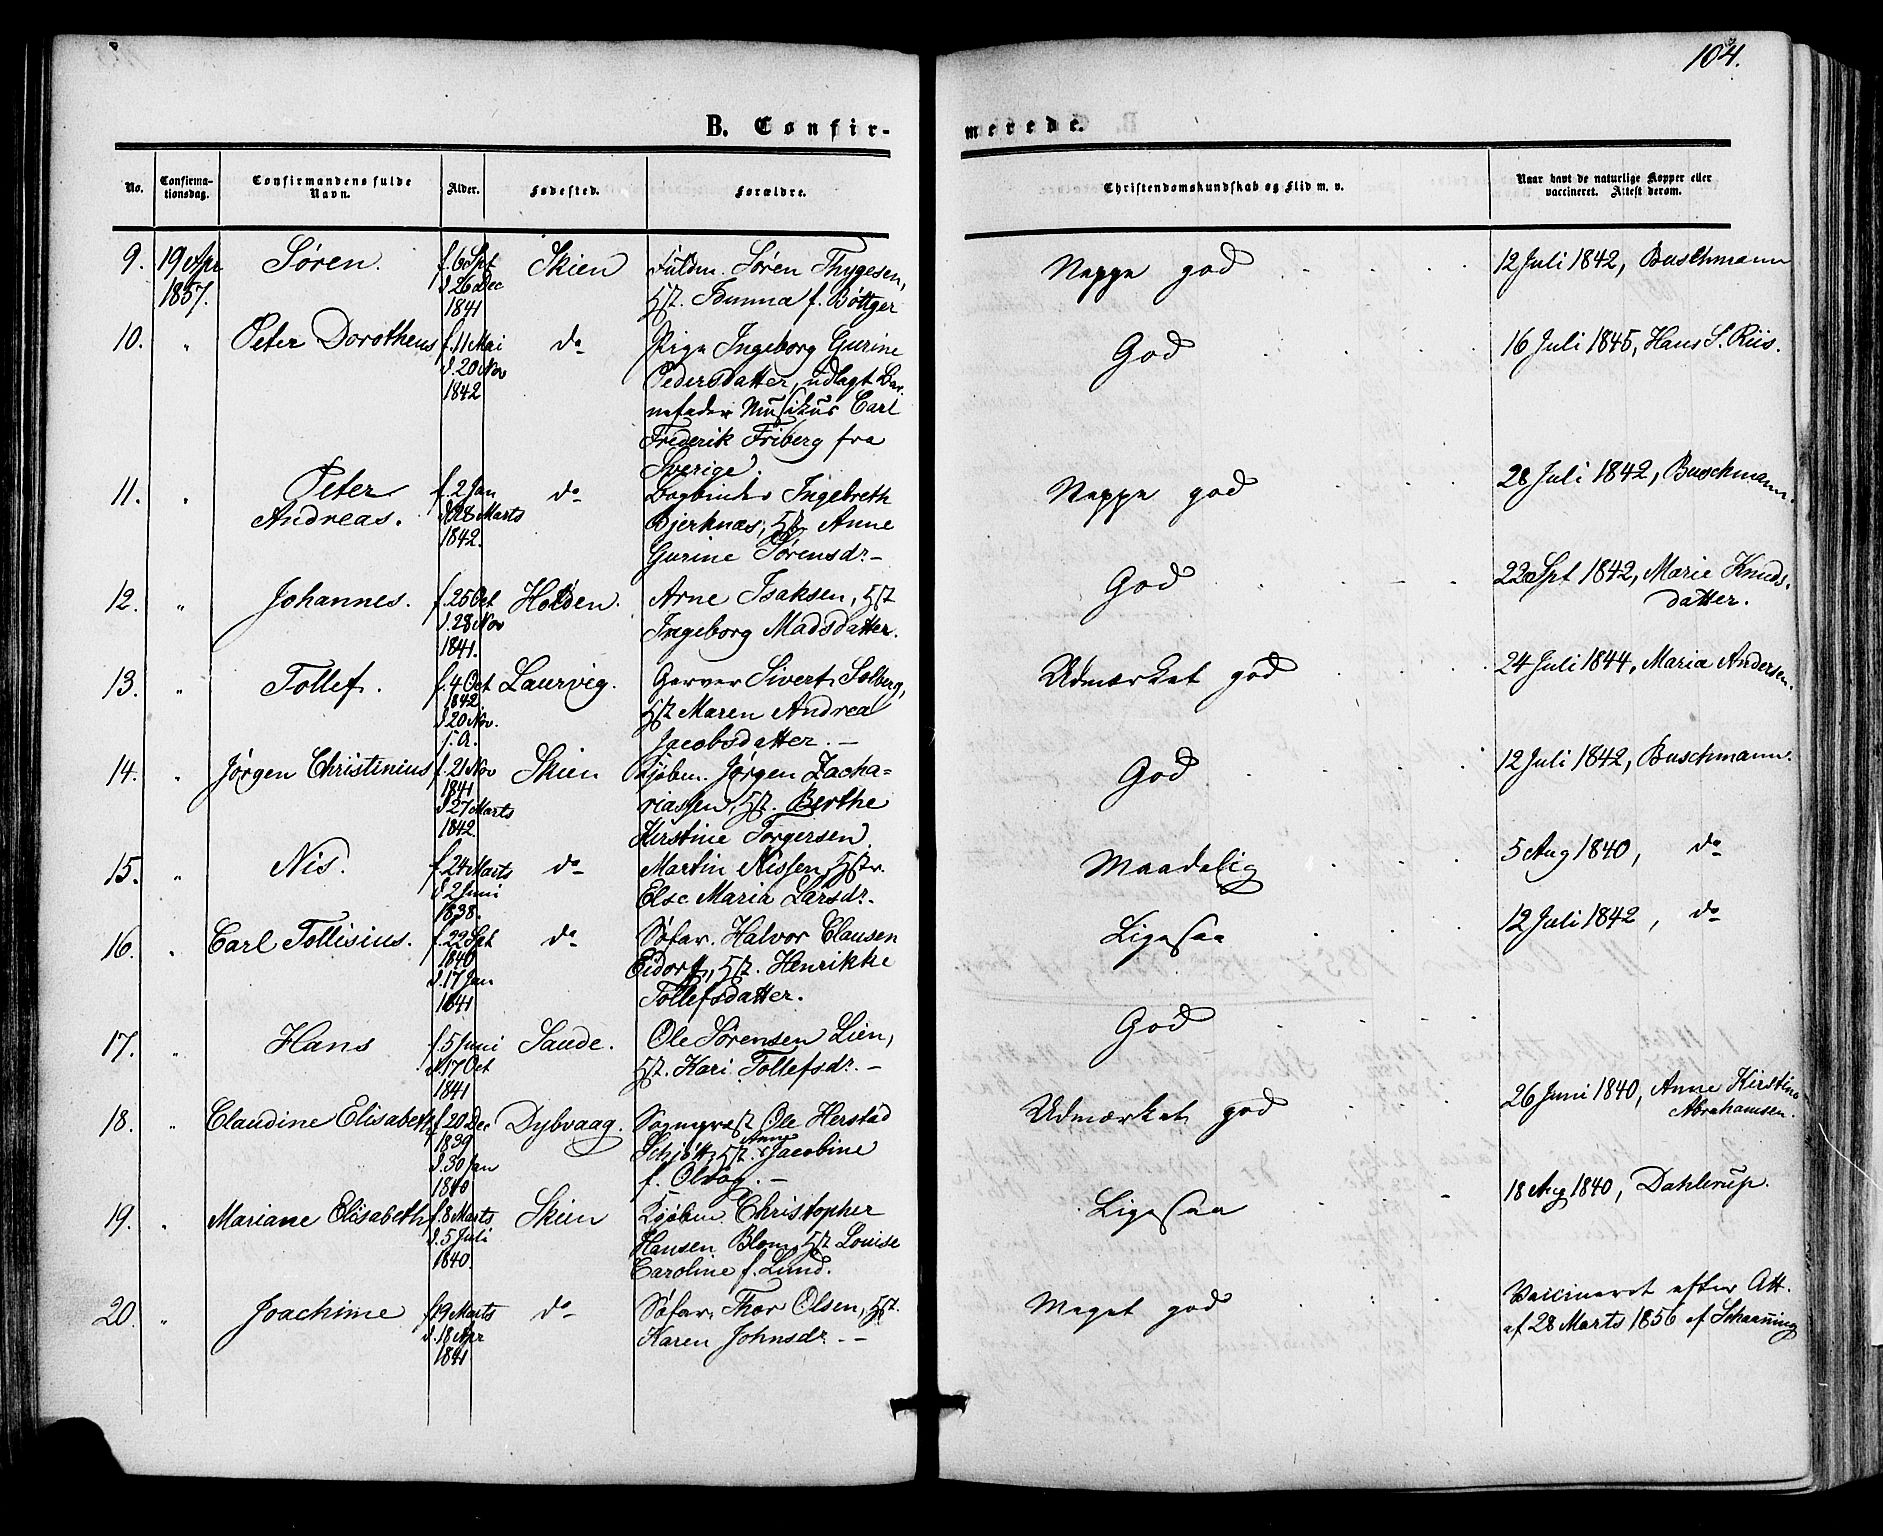 104.
B. Confir-
merede.
No.
Confirma-
tionsdag.
Confirmandens fulde
Navn.
Alder.
Fødested.
Forældre.
Christendomskundskab og Flid m. v.
Naar havt de naturlige Kopper eller
vaccineret. Attest derom.
9. 19 Apr Søren. f. 6 Spt Skien Fuldm. Søren Thygesen, Neppe god 12 Juli 1842, Buschmann
1857. d. 26 Dec Hst. f. Bøttger
1841
10. " Peter Dorotheus f. 11 Mai do Pige Ingeborg Gurine God 16 Juli 1845, Hans S. Riis.
d. 20 Nov Pedersdatter, udlagt Bar-
1842 nefader Musikus Carl
Frederik Friberg fra
Sverige.
11. " Peter f. 2 Jan do Bogbinder Ingebreth Neppe god 28 Juli 1842, Buschmann.
Andreas. d. 28 Marts Bjerknæs, Hst Anne
1842. Gurine Sørensdr. -
12. " Johannes. f. 25 Oct Holden. Arne Isaksen, Hst God 22 Spt 1842, Marie Knuds-
d. 28 Nov Ingeborg Madsdatter. datter.
1841.
13. " Tollef. f. 4 Oct Laurvig. Garver Sivert Solberg, Udmærket god 24 Juli 1844, Maria Andersen.
1842 Hst Maren Andrea
d. 20 Nov. Jacobsdatter. -
s. A.
14. " Jørgen Christinius f. 21 Nov Skien Kjøbm. Jørgen Zacha= God 12 Juli 1842, Buschmann.
1841 riassen, Hst. Berthe
d. 27 Marts Kirstine Torgersen.
1842.
15. " Nis. f. 24 Marts do Martin Nissen, Hstr. Maadelig 5 Aug 1840, do
d. 2 Juni Else Maria Larsdr.
1838.
16. " Carl Tollisius. f. 22 Spt do Søfar. Halvor Clausen Ligesaa 12 Juli 1842, do
1840 Eidorf, Hst. Henrikke
d. 17 Jan Tollefsdatter.
1841
17. " Hans f. 5 Juni Saude. Ole Sørensen Lien, God
d. 17 Oct Hst. Kari Tollefsdr. -
1841
18. " Claudine Elisabeth f. 20 Dec Dybvaag. Sognepræst Ole Herstad Udmærket god 26 Juni 1840, Anne Kirstine
1839 Schjøtt, Hst. Anne Jacobine Abrahamsen.
d. 30 Jan f. Olvog. -
1840
19. " Mariane Elisabeth f. 8 Marts Skien Kjøbm. Christopher Ligesaa 18 Aug 1840, Dahlerup.
d. 5 Juli Hansen Blom, Hst Louise
1840. Caroline f. Lund.
20. " Joachime f. 19 Marts do Søfar. Thor Olsen, Hst. Meget god Vaccineret efter Att.
d. 18 Apr Karen Johnsdr. - - af 28 Marts 1856 af Schanning
1841